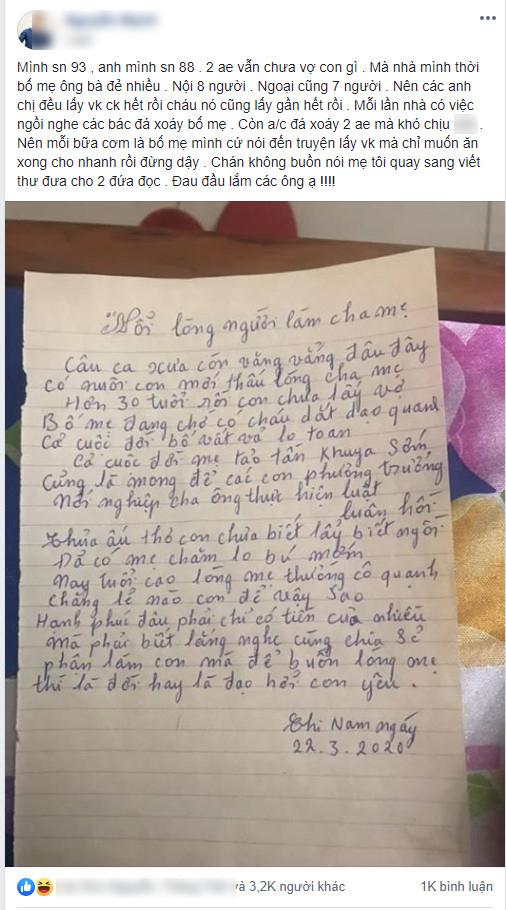 Mình sn 93 , anh mình sn 88 . 2 ae vẫn chưa vợ con gì . Mà nhà mình thời
bố mẹ ông bà đẻ nhiều . Nội 8 người . Ngoại cũng 7 người . Nên các anh
chị đều lấy vk ck hết rồi cháu nó cũng lấy gần hết rồi . Mỗi lần nhà có việc
ngồi nghe các bác đá xoáy bố mẹ . Còn a/c đá xoáy 2 ae mà khó chịu .
Nên mỗi bữa cơm là bố mẹ mình cứ nói đến truyện lấy vk mà chỉ muốn ăn
xong cho nhanh rồi đứng dậy . Chán không buồn nói mẹ tôi quay sang viết
thư đưa cho 2 đứa đọc . Đau đầu lắm các ông ạ !!!!
"Nổi lòng người làm cha mẹ
Câu ca xưa còn văng vẳng đâu đây
Có nuôi con mới thấu lòng cha mẹ
Hơn 30 tuổi rồi con chưa lấy vợ
Bố mẹ đang chờ có cháu dắt dạo quanh
Cả cuộc đời bố vất vả lo toan
Cả cuộc đời mẹ tảo tần khuya sớm
Củng là mong để các con phương trưởng
Nối nghiệp cha ông thực hiện luật
luân hồi.
Thủa ấu thơ con chưa biết lẩy biết ngồi
Đã có mẹ chăm lo bú mớm
Nay tuổi cao lòng mẹ thương cô quạnh
Chẳng lẻ nào con để vậy sao
Hạnh phúc đâu phải chỉ có tiền của nhiều
Mà phải biết lắng nghe cùng chia sẻ
phân làm con mà để buồn lòng mẹ
thì là đời hay là đạo hởi con yêu.
Thi Nam ngày
22.3.2020
và 3,2K người khác
1K bình luận